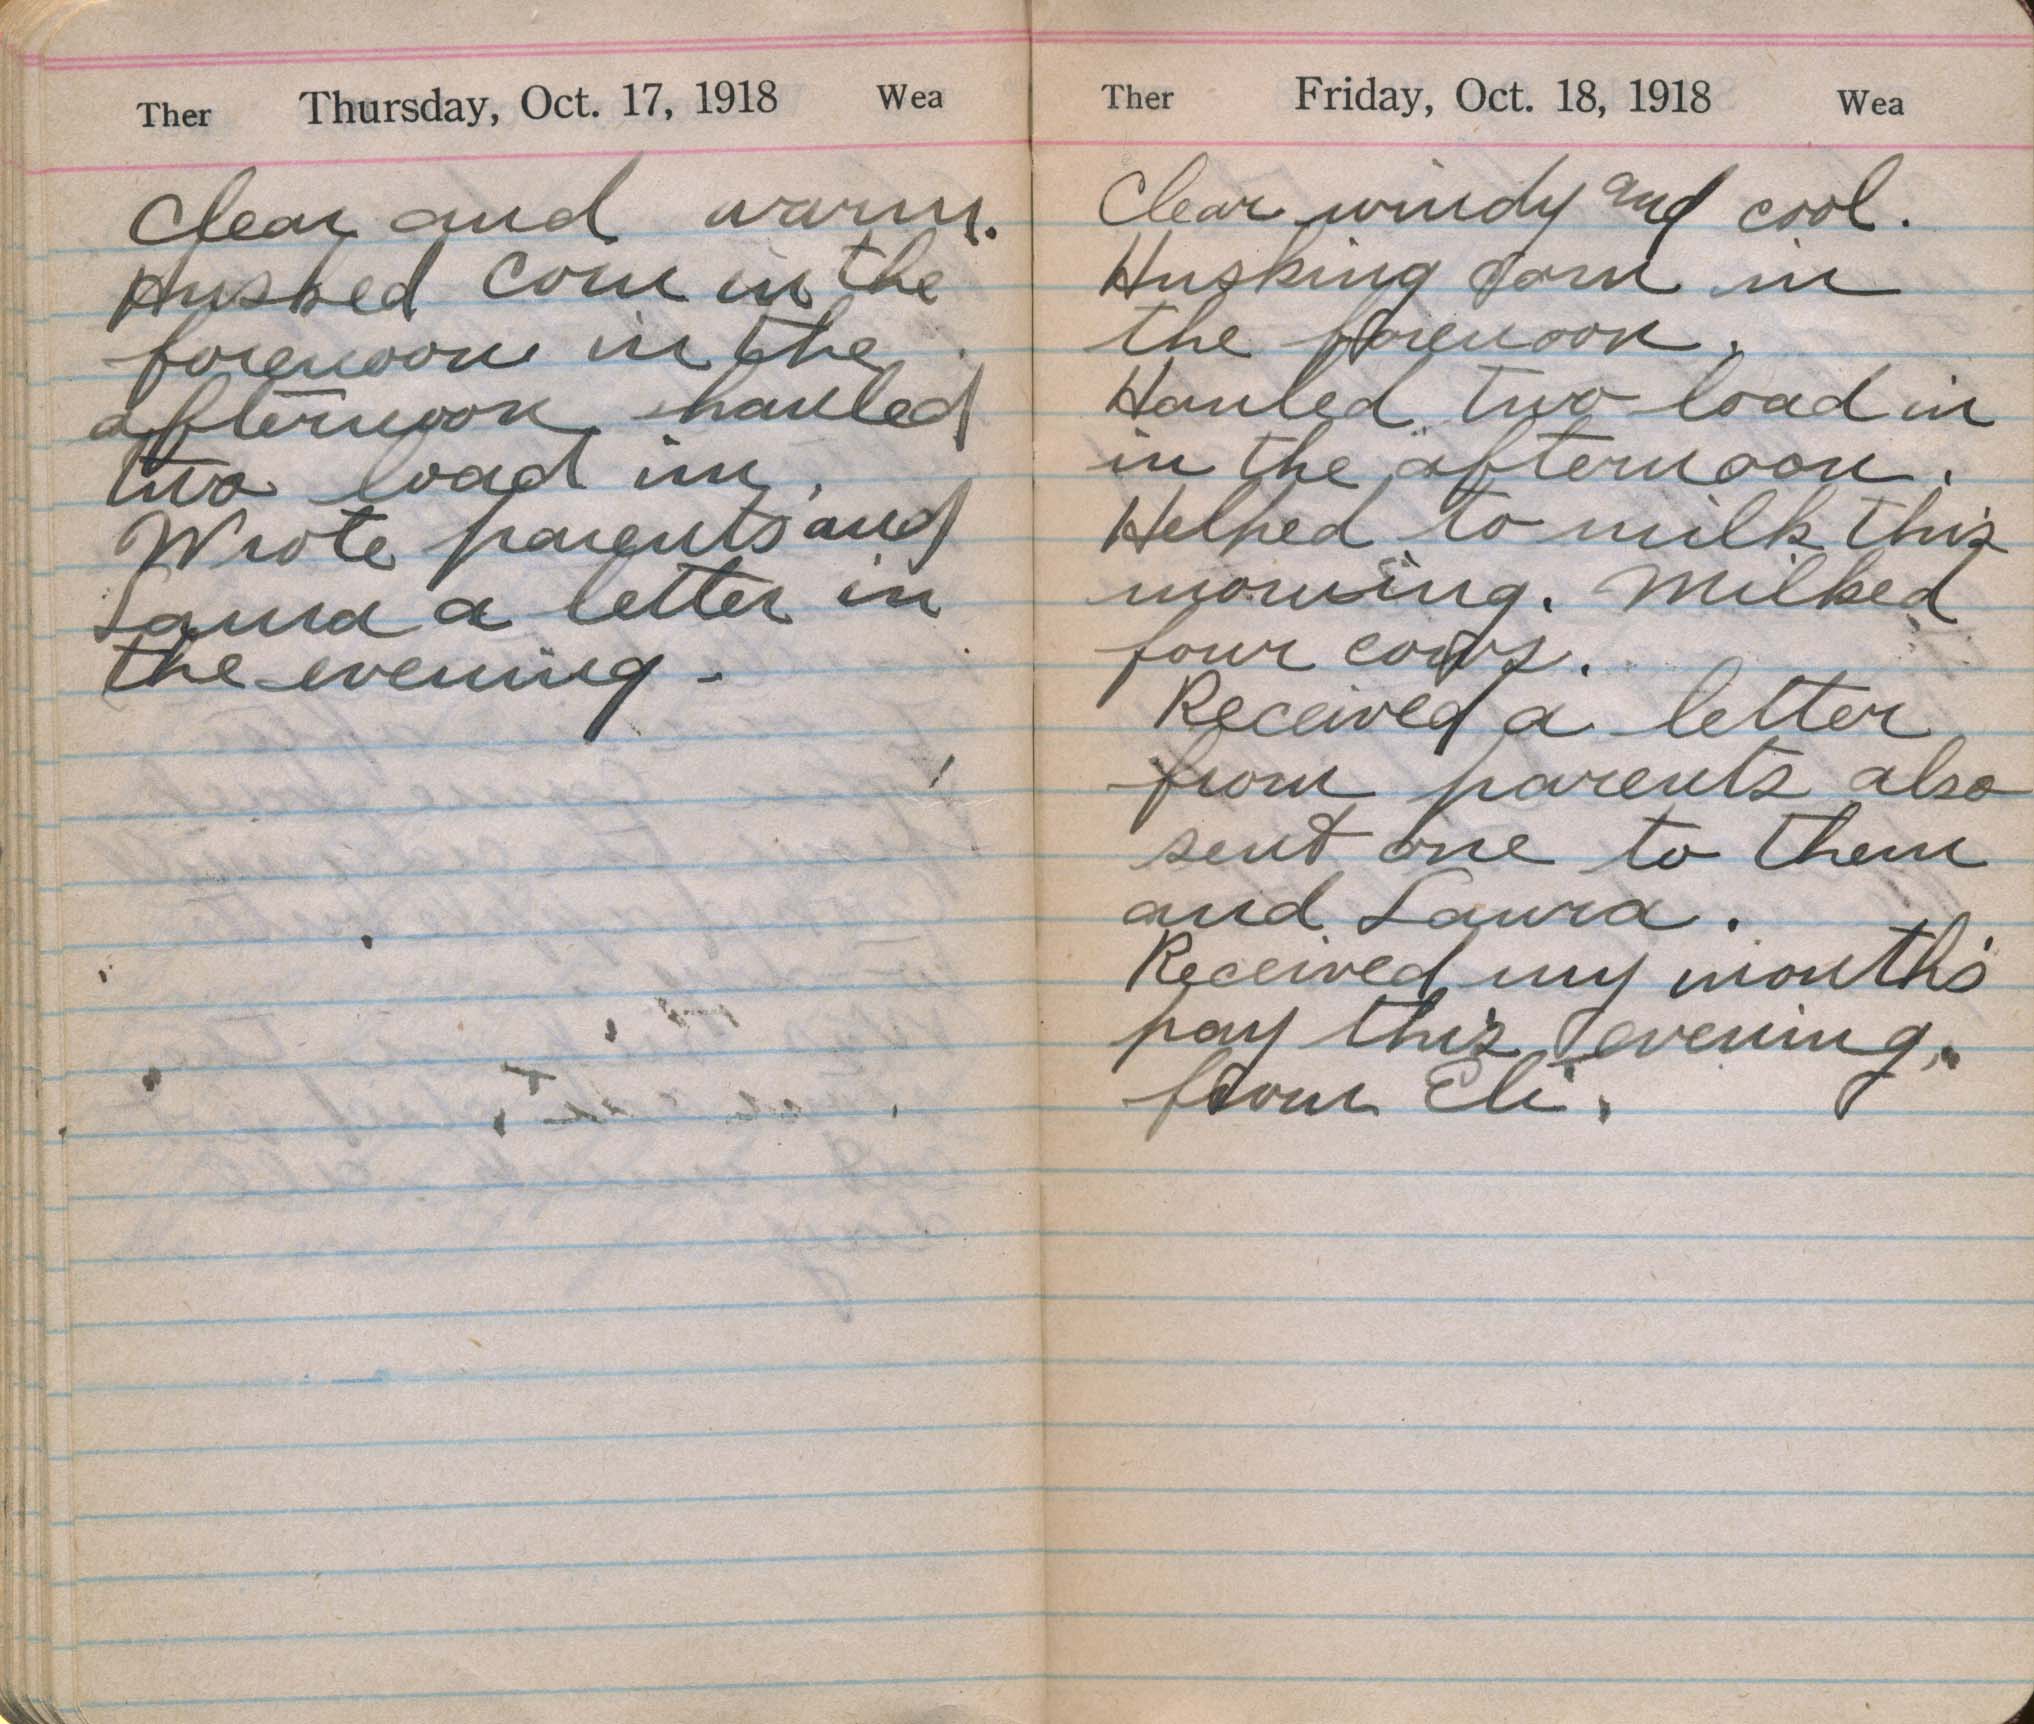 Ther Thursday, Oct. 17, 1918 Wea
Clear and warm.
Husked Corn in the
forenoon in the
afternoon hauled
two load in.
Wrote parents and
Laura a letter in
the evening.
Ther Friday, Oct. 18, 1918 Wea
Clear windy and cool.
Husking Corn in
the forenoon.
Hauled two load in
in the afternoon.
Helped to milk this
morning. Milked
four cows.
Received a letter
from parents also
sent one to them
and Laura.
Received my month's
pay this evening.
from Eli.